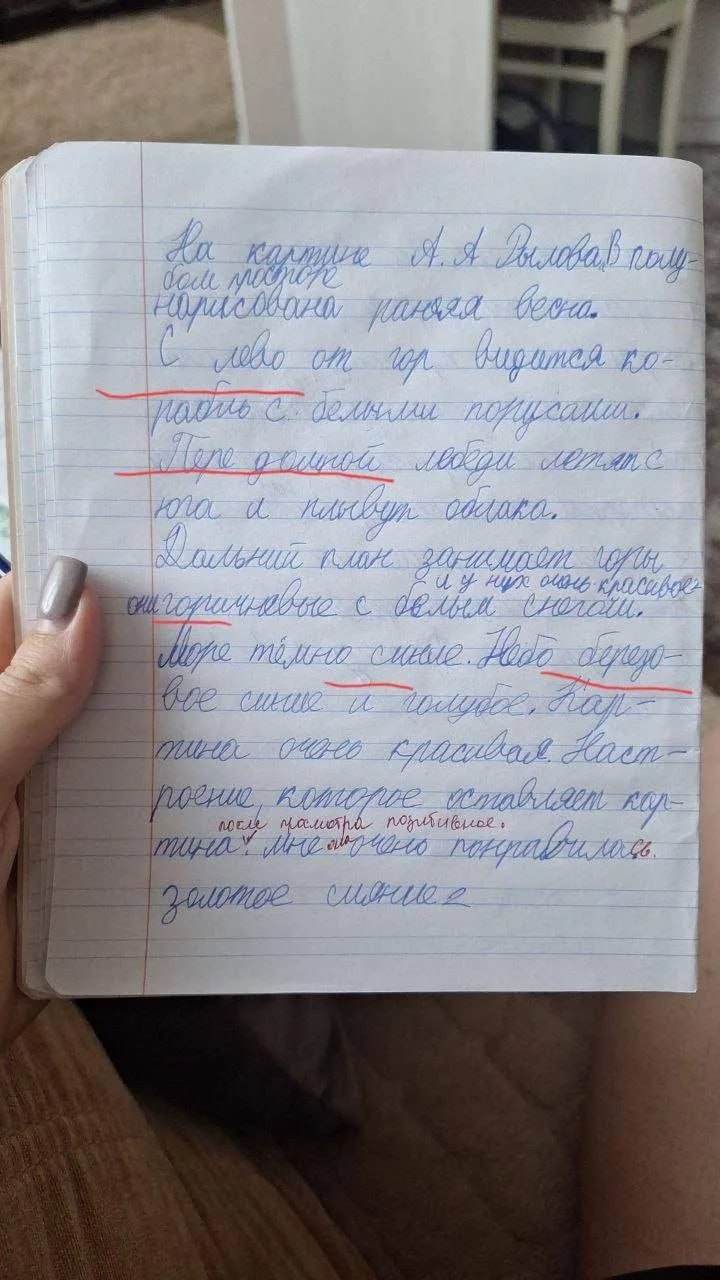 На картине А. А Рылова „В голу-
бом просторе
нарисована ранняя весна.
С лево от гор видится ко-
рабль с белыми порусами.
Пере домной лебеди летят с
юга и плывут облака.
Дальний план занимает горы
и у них очень красивое
они горичневые с белым снегом.
Море тёмно синие. Небо березо-
вое синие и голубое. Кар-
тина очень красивая. Наст-
роение, которое оставляет кар-
после прамотра позитивное.
тина. Мне очено понравилась.
золотое сияние